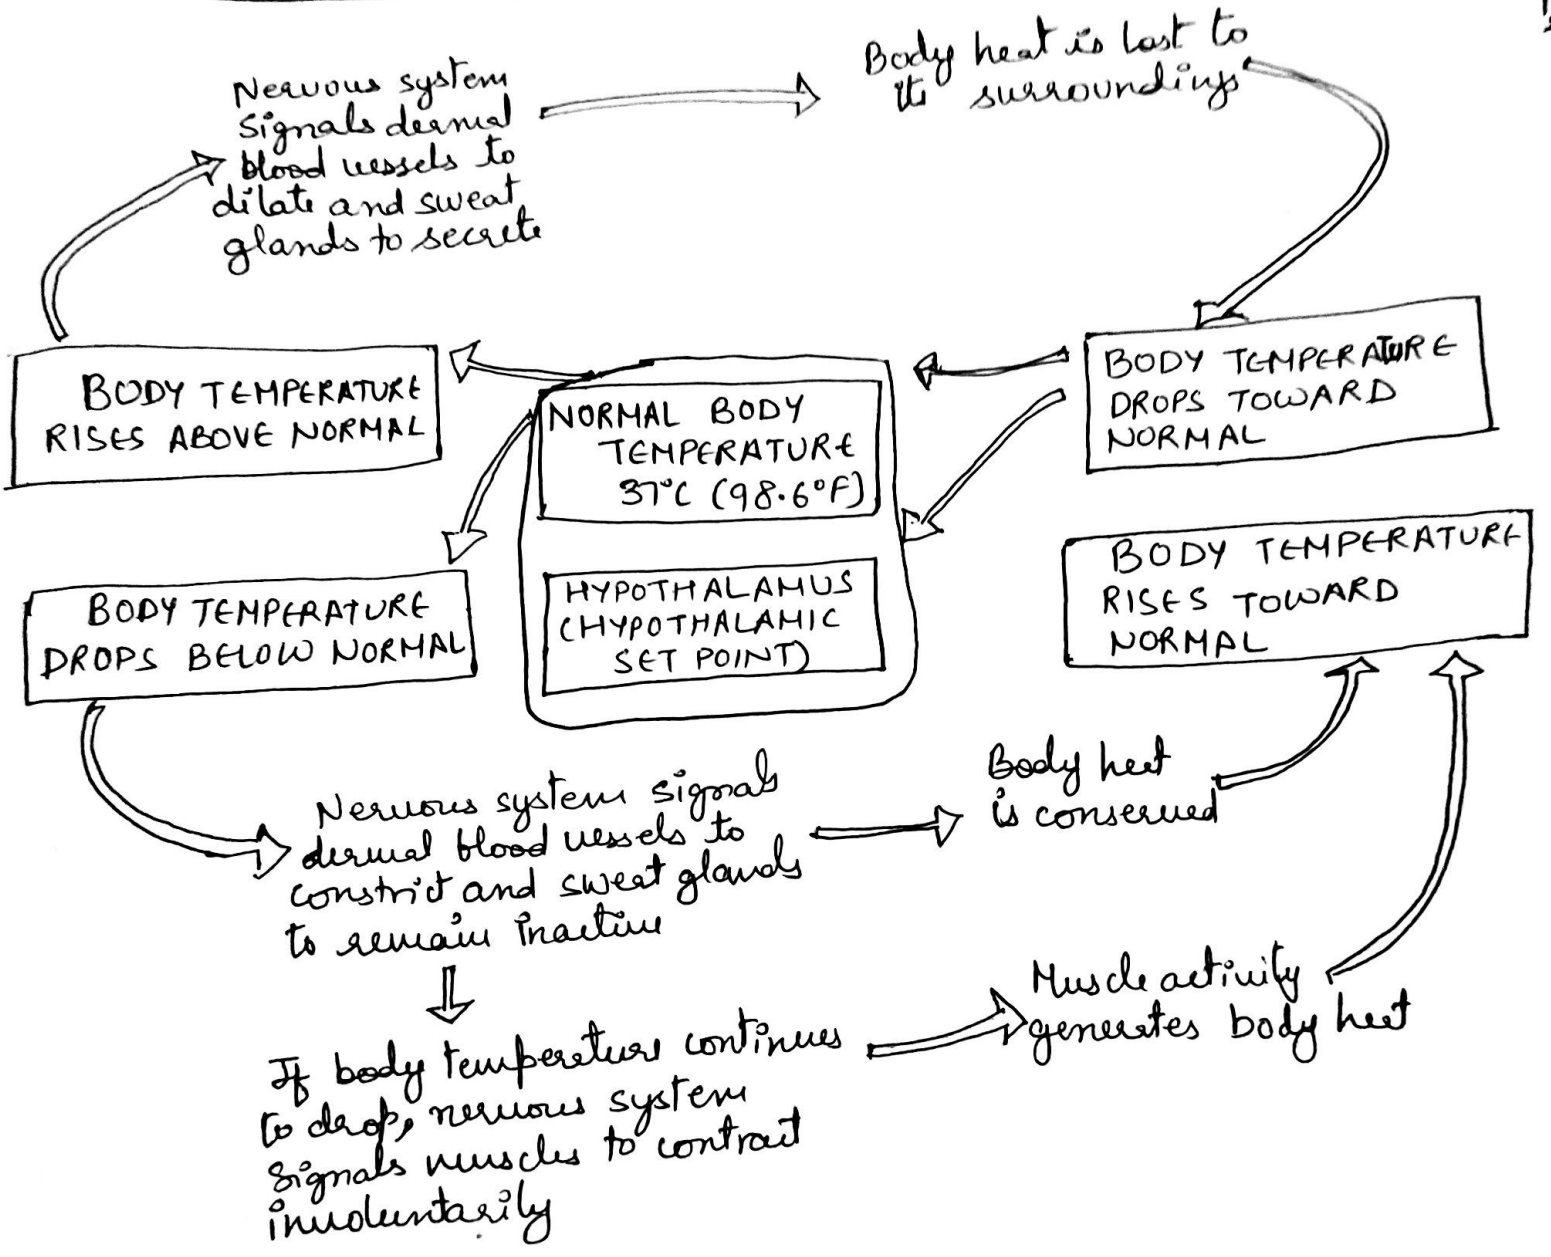 Nervous system
signals dermal
blood vessels to
dilate and sweat
glands to secrete
Body heat is lost to
its surroundings
BODY TEMPERATURE
RISES ABOVE NORMAL
NORMAL BODY
TEMPERATURE
37°C (98.6°F)
BODY TEMPERATURE
DROPS TOWARD
NORMAL
BODY TEMPERATURE
DROPS BELOW NORMAL
HYPOTHALAMUS
(HYPOTHALAMIC
SET POINT)
BODY TEMPERATURE
RISES TOWARD
NORMAL
Nervous system signals
dermal blood vessels to
constrict and sweat glands
to remain inactive
Body heat
is conserved
If body temperature continues
to drop, nervous system
signals muscles to contract
involuntarily
Muscle activity
generates body heat